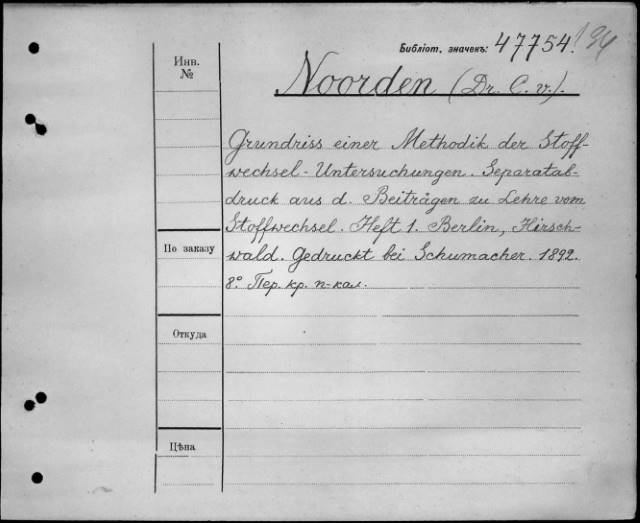 Библіот. значекъ: 47754
Инв.
№
Noorden (Dr. C. v.).
Grundriss einer Methodik der Stoff-
wechsel-Untersuchungen. Separatab-
druck aus d. Beiträgen zu Lehre vom
Stoffwechsel. Heft 1. Berlin, Hirsch-
По заказу
wald. Gedruckt bei Schumacher. 1892.
8° Пер. кр. п-кал.
Откуда
Цѣна